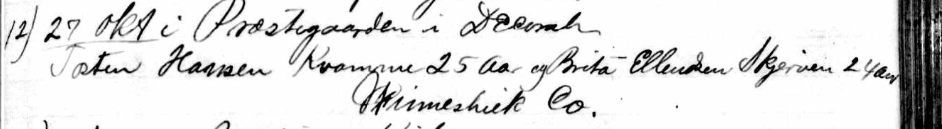 12) 27 Okt i Præstegaarden i Decorah
Tosten Hansen Kvamme 25 Aar og Brita Ellendsen Skjerven 24 aar
Winneshiek Co.